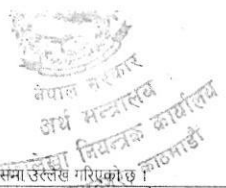 नेपाल सरकार
अर्थ मन्त्रालय
नियन्त्रक कार्यालय
काठमाडौं
उल्लेख गरिएको छ ।